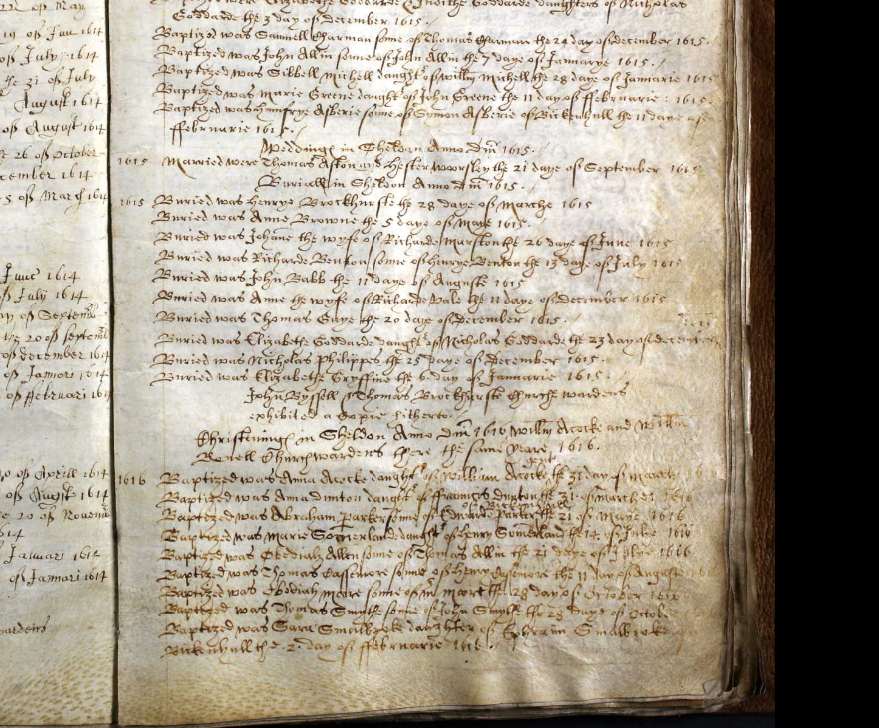 22 of May
Goddarde the 3 day of december 1615
19 of Jun 1614
Baptized was Samuell Charman sonne of Thomas Charman the 24 day of december 1615.
of July 1614
Baptized was John Allin sonne of John Allin the 7 daye of Januarye 1615.
the 31 of July
Baptized was Sibbell Michell daught of Willm Michell the 28 daye of Januarie 1615
August 1614
Baptized was Marie Greene daught of John Greene the 11 day of ffebruarie 1615.
of August 1614
Baptized was Humfrye Asberie sonne of Symon Asberie of Bickenhull the 11 daye of
ffebruarie 1615.
Weddings in Sheldon Anno dm 1615.
26 of October
1615 Married were Thomas Aston and Hester Worsley the 21 daye of September 1615
december 1614
Buriall in Sheldon Anno dm 1615.
5 of March 1614
1615 Buried was Henrye Brockhurste the 28 daye of Marche 1615
Buried was Anne Browne the 5 daye of Maye 1615.
Buried was Johane the wyfe of Richarde Marston the 26 daye of June 1615
Buried was Richarde Benton sonne of Henrye Benton the 13 daye of July 1615
June 1614
Buried was John Babb the 11 daye of Auguste 1615
of July 1614
Buried was Anne the wyfe of Richarde Dale the 11 daye of december 1615
of Septemb
Buried was Thomas Gaye the 20 daye of December 1615.
20 of septemb
Buried was Elizabethe Goddarde daught of Nicholas Goddarde the 23 day of december
of december 1614
Buried was Nicholas Philipps the 25 daye of December 1615.
of Januari 1614
Buried was Elizabethe Gryffine the 6 day of Januarie 1615.
of ffebruari 1614
John Byssell Thomas Brockhurste Church wardens
exhibited a Copie hitherto.
Christenings in Sheldon Anno dm 1616 Willm Acocke and Willm
Bonell Churchwardens there the same yeare 1616.
of Aprill 1614
1616 Baptized was Anna Acocke daught of William Acocke the 31 day of March
of August 1614
Baptized was Anna dunton daught of Francis dunton the 31 of marche 1616
20 of Novemb
Baptized was Abraham Parker sonne of Edwarde Parker the 21 of Maye 1616
1614
Baptized was Marie Somerlande daught of Henry Somerland the 14 of Julye 1616
Januari 1614
Baptized was Obediah Allen sonne of Thomas Allin the 21 daye of Julye 1616
of Januari 1614
Baptized was Thomas Cassemore sonne of Henry Cassemore the 11 day of August
Baptized was Obbdiah Moore sonne of the 28 day of October 1616
Baptized was Thomas Smythe sonne of John Smythe the 28 daye of Octob
wardens
Baptized was Sara Smalbroke daughter of Ephraim Smalbroke
Bickenhull the 2 day of ffebruarie 1616.